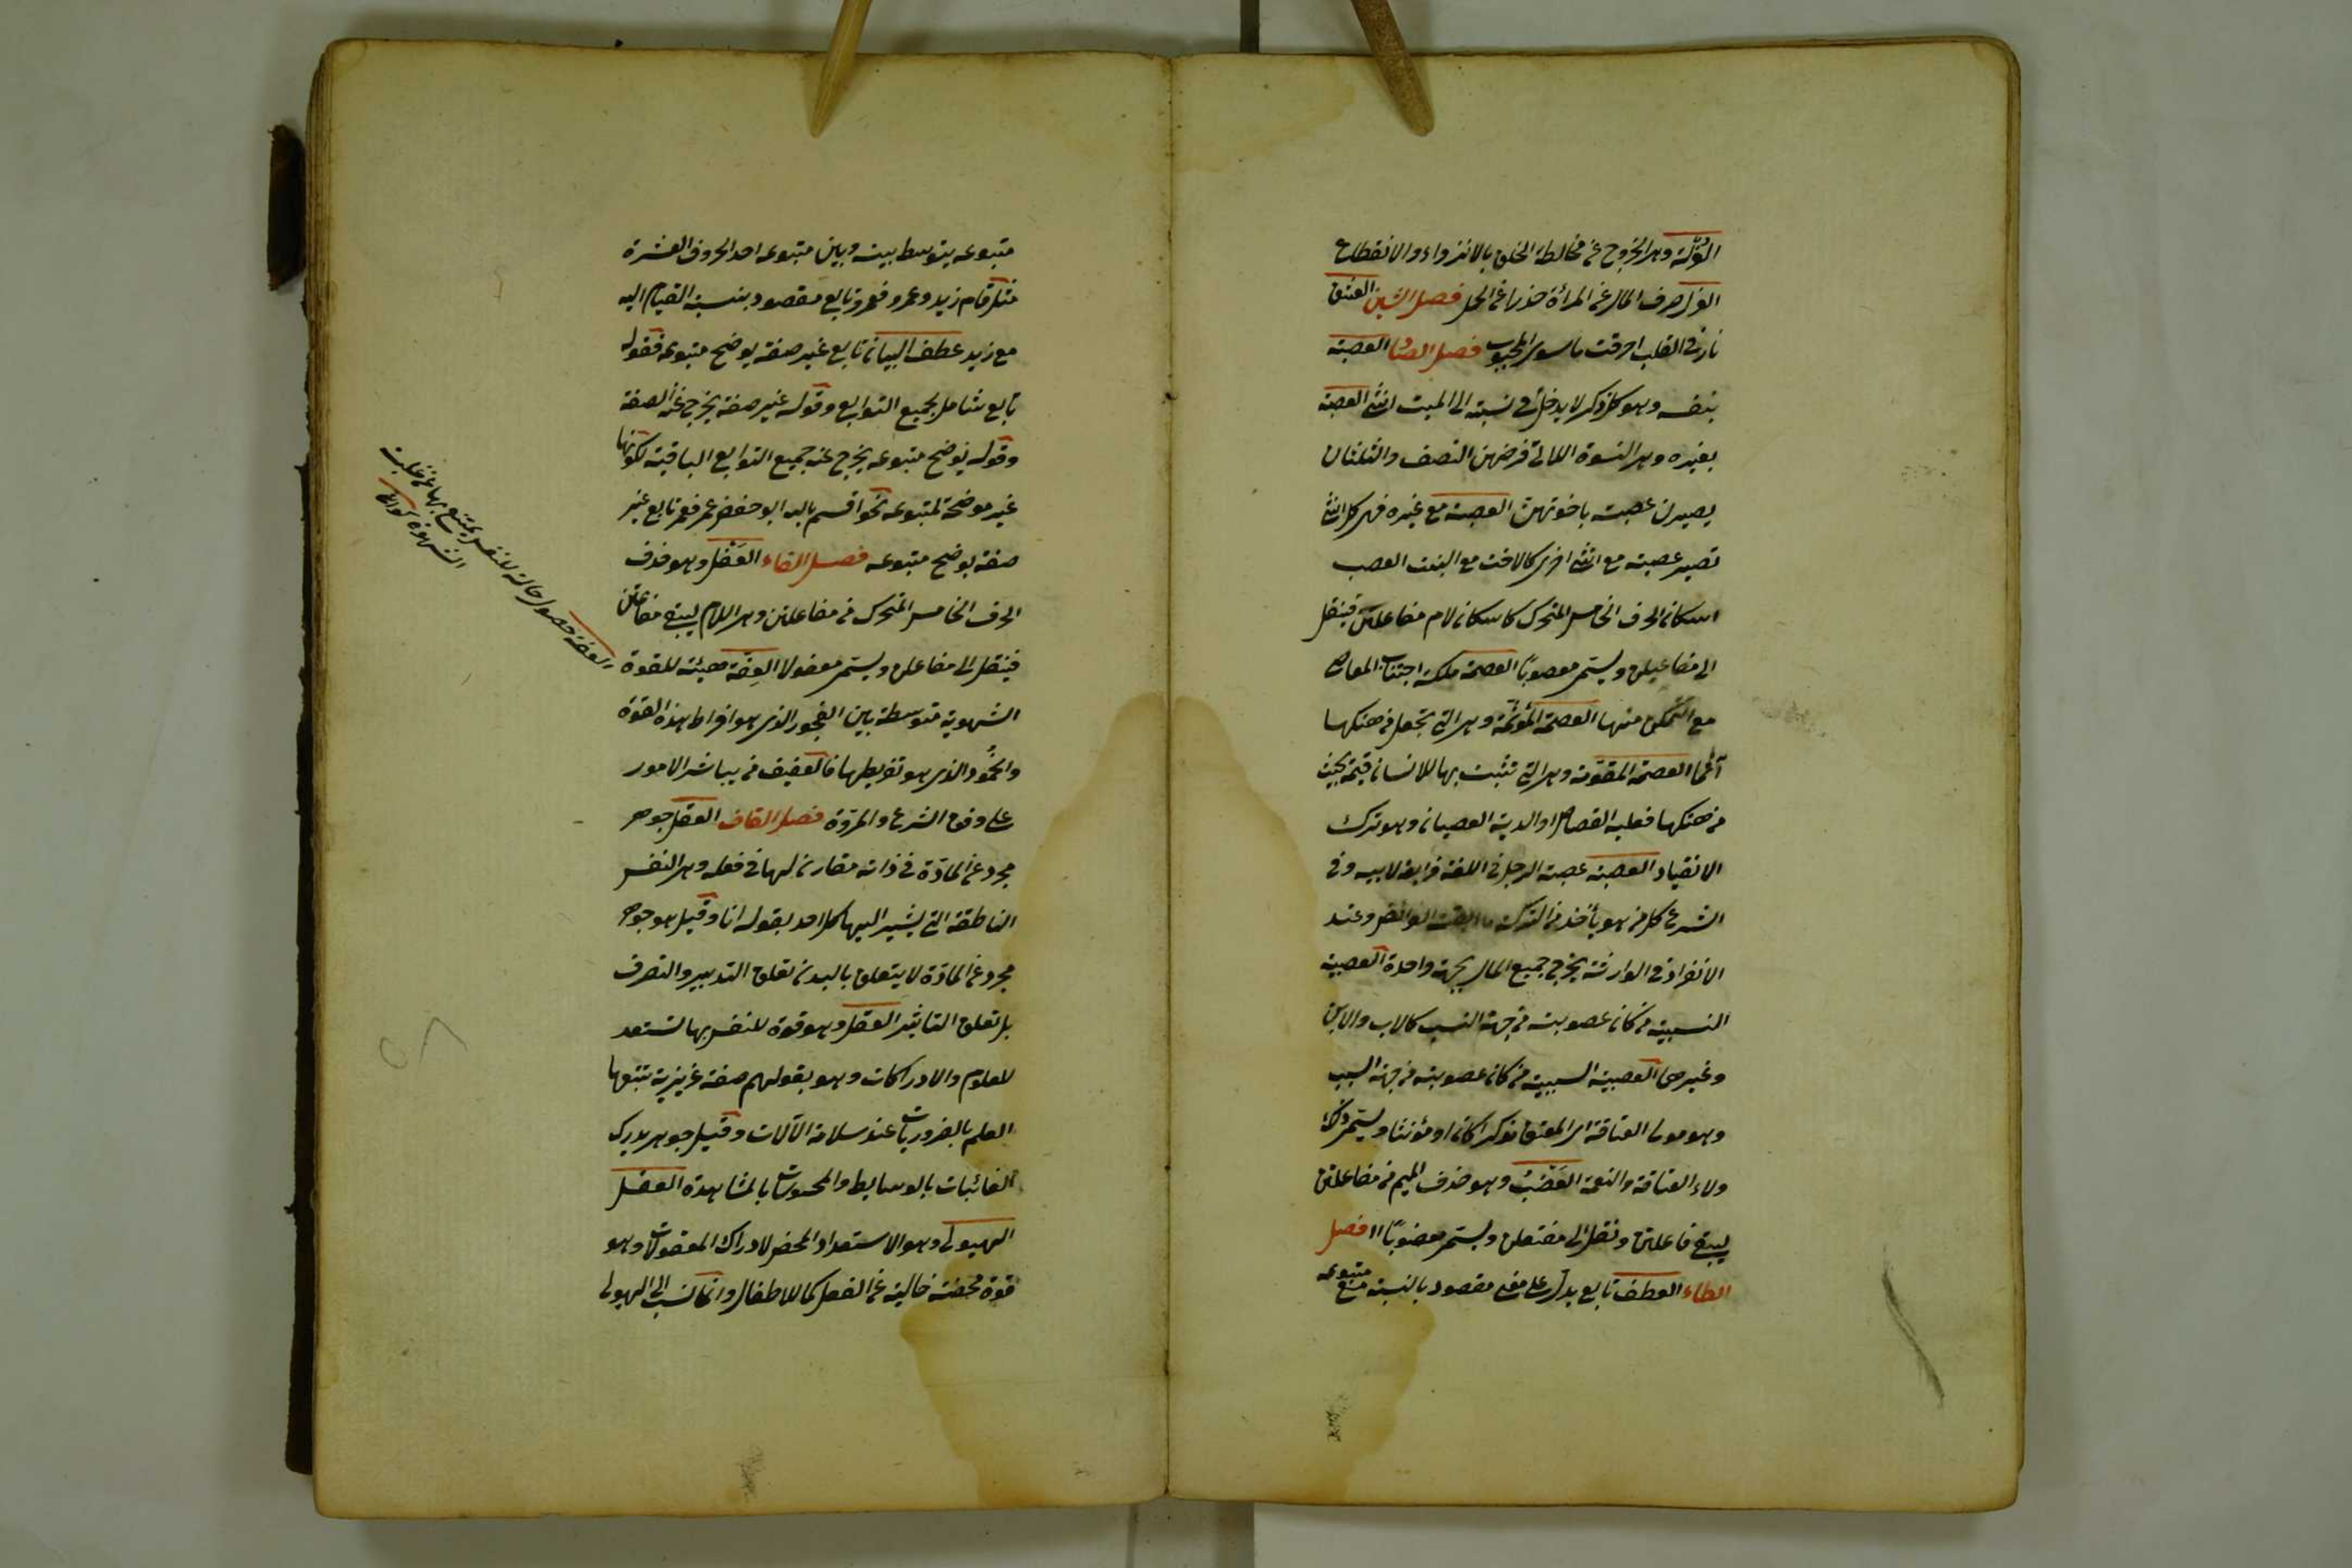 العُزلة وهى الخروج عن مخالطة الخلق بالانزواء والانقطاع
العزل صرف المال عن المرأة حذرا عن الحمل فصل الشين العشق
نار فى القلب احرقت ما سوى المحبوب فصل الصاد العصبة
بنفسه وهو كل ذكر لا يدخل فى نسبته الى الميت انثى العصبة
بغيره وهى النسوة اللاتى فرضهن النصف والثلثان
يصيرن عصبة باخوتهن العصبة مع غيره فهى كل انثى
تصير عصبة مع انثى اخرى كالاخت مع البنت العصب
اسكان الحرف الخامس المتحرك كاسكان لام مفاعلتن فينقل
الى مفاعيلن ويسمى معصوبًا العصمة ملكة اجتناب المعاصى
مع التمكن منها العصمة المؤثمة وهى التى تجعل من هتكها
آثما العصمة المقومة وهى التى تثبت بها للانسان قيمة بحيث
من هتكها فعليه القصاص او الدية العصيان وهو ترك
الانقياد العصبة عصبة الرجل فى اللغة قرابته لابيه وفى
الشرع كل من هو يأخذ من التركة ما ابقت الفرائض وعند
الانفراد فى الوارثة يخرج جميع المال بجهة واحدة العصبة
النسبية من كان عصوبته من جهة النسب كالاب والابن
وغيرهما العصبية السببية من كان عصوبته من جهة السبب
وهو مولى العتاقة اى المعتق مذكرا كان او مؤنثا ويسمى
ولاء العتاقة والنعمة العَضْب وهو حذف الميم من مفاعلتن
ليبقى فاعلتن ونقل الى مفتعلن ويسمى معضوبًا فصل
الطاء العطف تابع يدل على معنى مقصود بالنسبة مع متبوعه
متبوعه يتوسط بينه وبين متبوعه احد الحروف العشرة
مثل قام زيد وعمرو فعمرو تابع مقصود بنسبة القيام اليه
مع زيد عطف البيان تابع غير صفة يوضح متبوعه فقوله
تابع شامل لجميع التوابع وقوله غير صفة يخرج عنه الصفة
وقوله يوضح متبوعه يخرج عنه جميع التوابع الباقية لكونها
غير موضحة لمتبوعه نحو اقسم بالله ابو حفص عمر فعمر تابع غير
صفة يوضح متبوعه فصل الفاء العَقْل وهو حذف
الحرف الخامس المتحرك من مفاعلتن وهى اللام ليبقى مفاعتن
فينقل الى مفاعلن ويسمى معقولا العِفّة هيئة للقوة
الشهوية متوسطة بين الفجور الذى هو افراط هذه القوة
والخُمود الذى هو تفريطها فالعفيف من يباشر الامور
على وفق الشرع والمروّة فصل القاف العقل جوهر
مجرد عن المادّة فى ذاته مقارن لها فى فعله وهى النفس
الناطقة التى يشير اليها كل احد بقوله انا وقيل هو جوهر
مجرد عن المادّة لا يتعلق بالبدن تعلق التدبير والتصرف
بل تعلق التاثير العقل وهو قوة للنفس بها تستعد
للعلوم والادراكات وهو بقولهم صفة غريزية تتبعها
العلم بالضروريات عند سلامة الآلات وقيل جوهر يدرك
الغائبات بالوسايط والمحسوسات بالمشاهدة العقل
الهيولى وهو الاستعداد المحض لادراك المعقولات وهو
قوة محضة خالية عن الفعل كما للاطفال وانما نسب الى الهيولى
العفة حصول حالة للنفس يمتنع بها عن غلبة
الشهوة